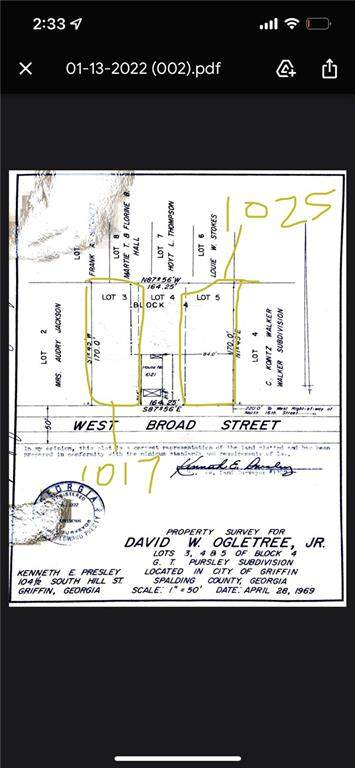 2:33
01-13-2022 (002).pdf
1025
LOT
FRANK R.
LOT 8
MARTIE T. & FLORINE B.
HALL
LOT 7
HOYT L. THOMPSON
LOT 6
LOUIE W. STOKES
N87°56'W
164.25'
LOT 3
LOT 4
LOT 5
BLOCK 4
LOT 2
MRS. AUDRY JACKSON
170.0'
HOUSE NO.
1021
84.0'
170.0'
N1°45'E
LOT 4
C. KONTZ WALKER
WALKER SUBDIVISION
164.25'
S87°56'E
220.0' To West Right-of-way of
North 15th Street
50'
WEST BROAD STREET
In my opinion, this plat is a correct representation of the land platted and has been
prepared in conformity with the minimum standards and requirements of law.
1017
GEORGIA
REGISTERED
PROPERTY SURVEY FOR
DAVID W. OGLETREE, JR.
LOTS 3, 4 & 5 OF BLOCK 4
G. T. PURSLEY SUBDIVISION
KENNETH E. PRESLEY LOCATED IN CITY OF GRIFFIN
104½ SOUTH HILL ST. SPALDING COUNTY, GEORGIA
GRIFFIN, GEORGIA SCALE: 1" = 50' DATE: APRIL 28, 1969